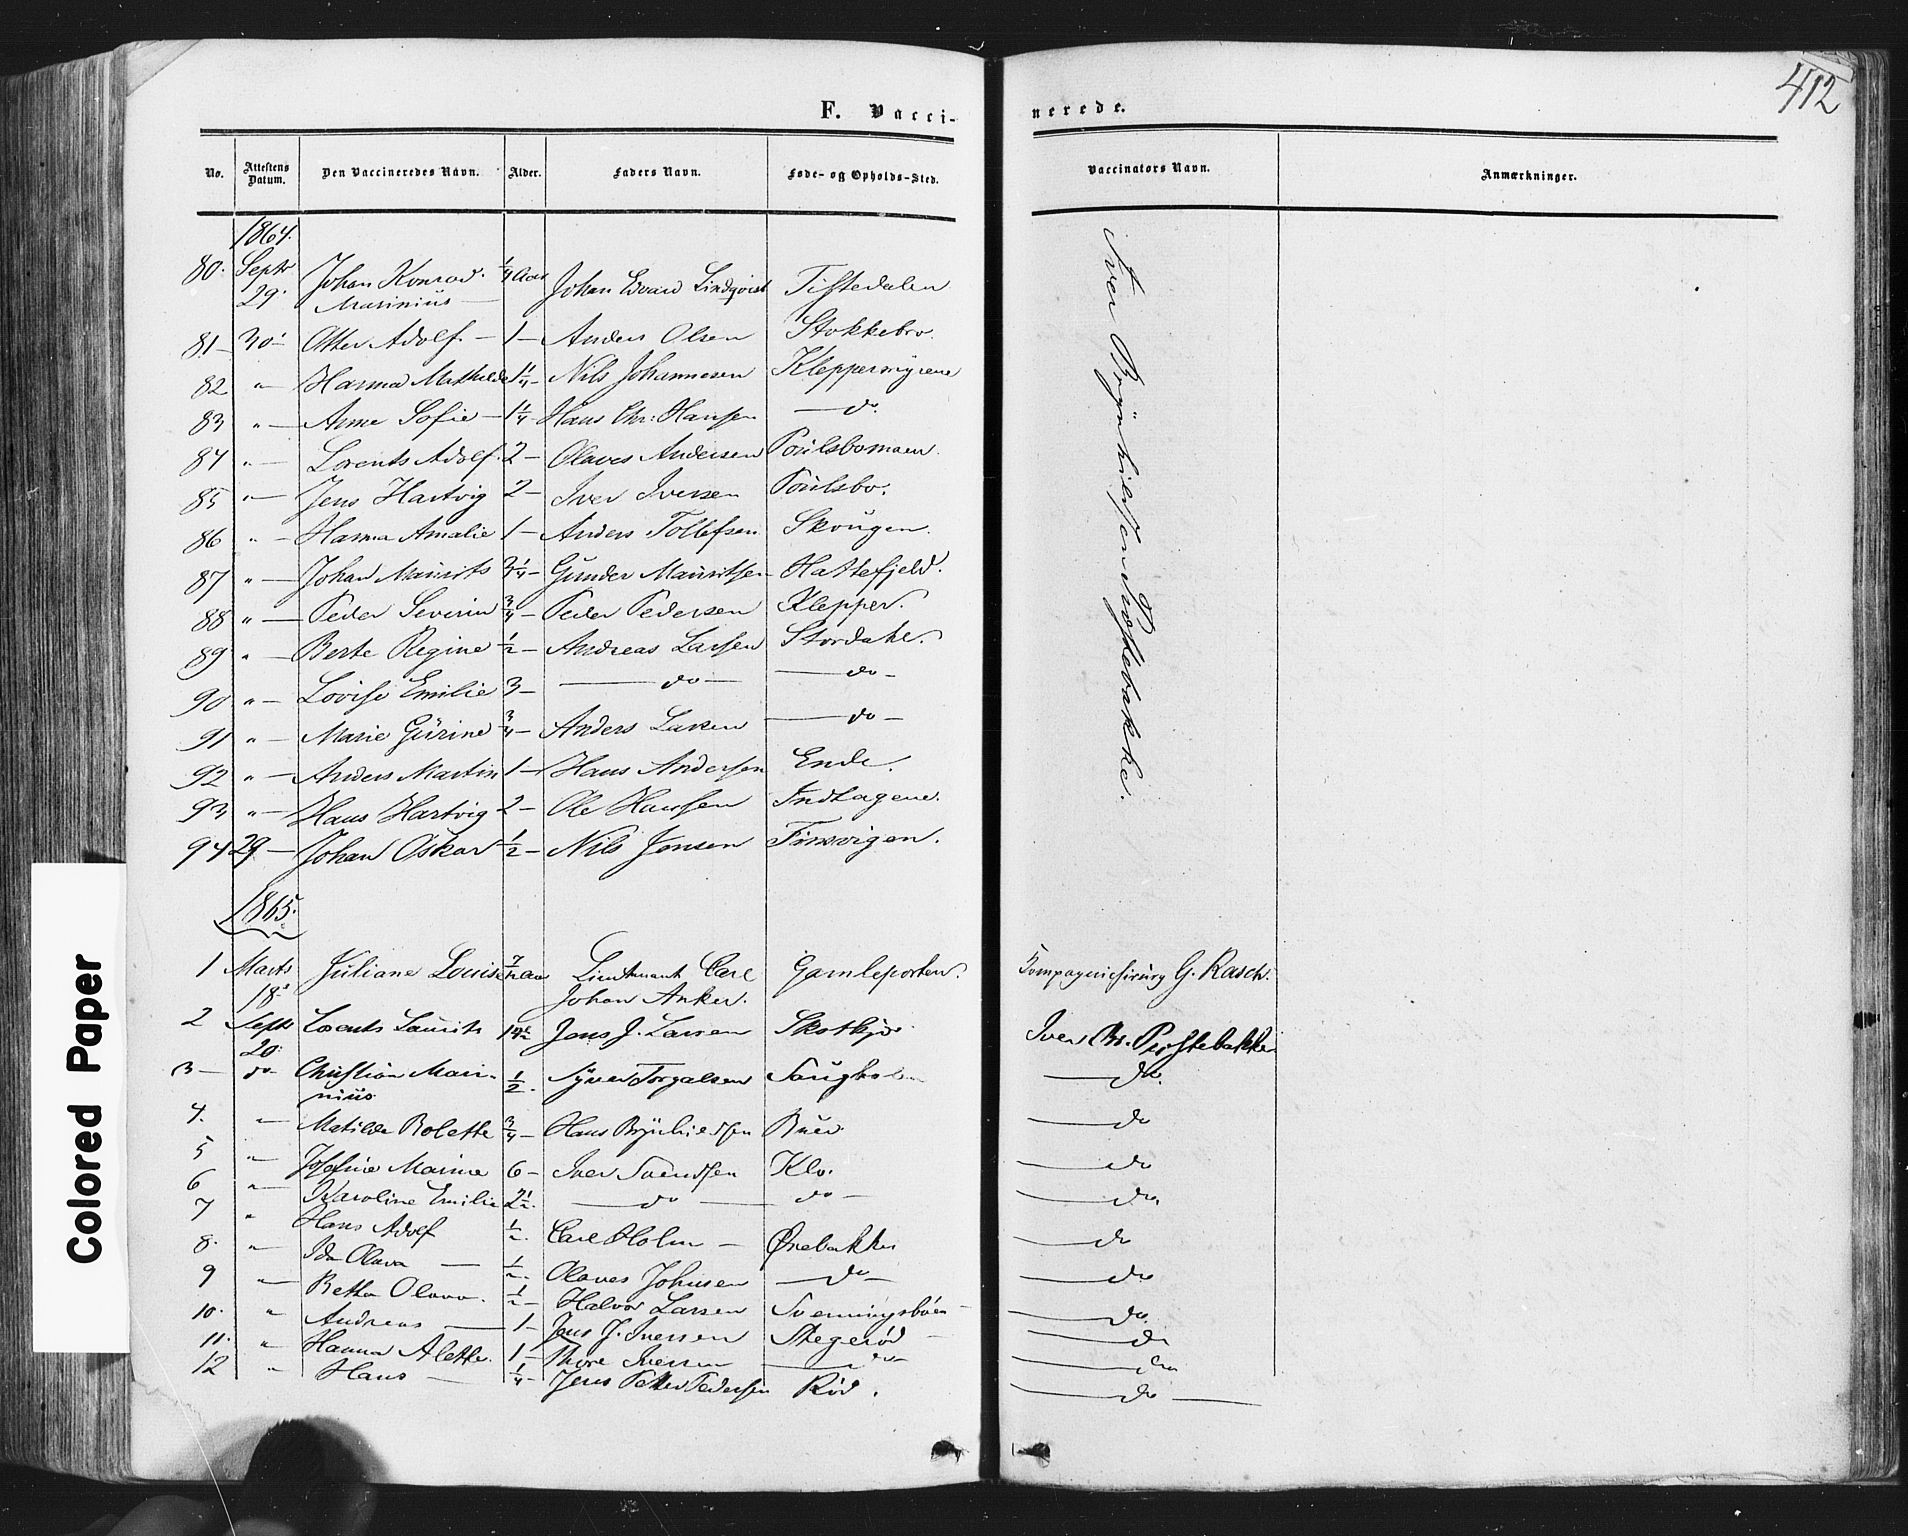 412
F. Vaccinerede.
No. Attestens Datum. Den Vaccineredes Navn. Alder. Faders Navn. Føde- og Opholds-Sted. Vaccinators Navn. Anmærkninger.
1864.
80. Septr 29. Johan Konrad Marinius — 1/4 Aar Johan Edvard Lindqvist Tistedalen
81 — 30 — Otter Adolf — 1 — Anders Olsen Stokkebro.
82 " — Hanna Mathilde 1 1/4 — Nils Johannesen Kleppermyrene
83 " — Anne Sofie — 1 1/4 — Hans Chr: Hansen — do.
84 " — Lorents Adolf. 2 — Olaves Andersen Poulsbomoen.
85 " — Jens Hartvig 2 — Iver Iversen Poulsbo.
86 " — Hanna Amalie 1 — Anders Tollefsen Skougen.
87 " — Johan Maurits 3 1/4 — Gunder Mauritsen — Hattefjeld.
88 " — Peder Severin 3/4 — Peder Pedersen Klepper.
89 " — Berte Regine 1/2 — Andreas Larsen Stordahl.
90 " — Lovise Emilie 3 — — do — — do —
91 " — Marie Gurine 3/4 — Anders Larsen — do —
92 " — Anders Martin 1 — Hans Andersen Ende.
93 " — Hans Hartvig 2 — Ole Hansen Indhagene.
94 29 — Johan Oskar 1/2 — Nils Jensen
Iver Brynhildsen Pristebakke.
1865.
1 Marts 18. Juliane Louise 7/12 Aar Lieutenant Carl Johan Anker. Gamleporten. Kompagniechirurg G. Rasch.
2 Septr 20. Lorents Laurits Jens J. Larsen Iver Br. Pristebakke
3 — do — Christian Marinius 1/2 — Syver Torgalsen — do.
4. " — Matilde Bolette 3/4 — Hans Brynhildsen Buer — do
5 " — Josefine Marine 6 — Iver Svendsen Klo. — do
6 " — Karoline Emilie 2 1/2. — do — — do — — do.
7 " Hans Adolf 1/2. Carl Holm — Ørebakke — do
8. " — Ida Olava — 1/2. Olaves Johnsen — do — — do
9 " — Betha Olava. 1/2 — Halvor Larsen Svenningsbøen — — do.
10. " Andreas — 1 — Jens J. Iversen Stegerød — — do
11. " Hanna Alette. 1 — Thore Iversen — do — — do
12 " Hans — 1/4 — Jens Petter Pedersen Rød. — do —
Colored Paper